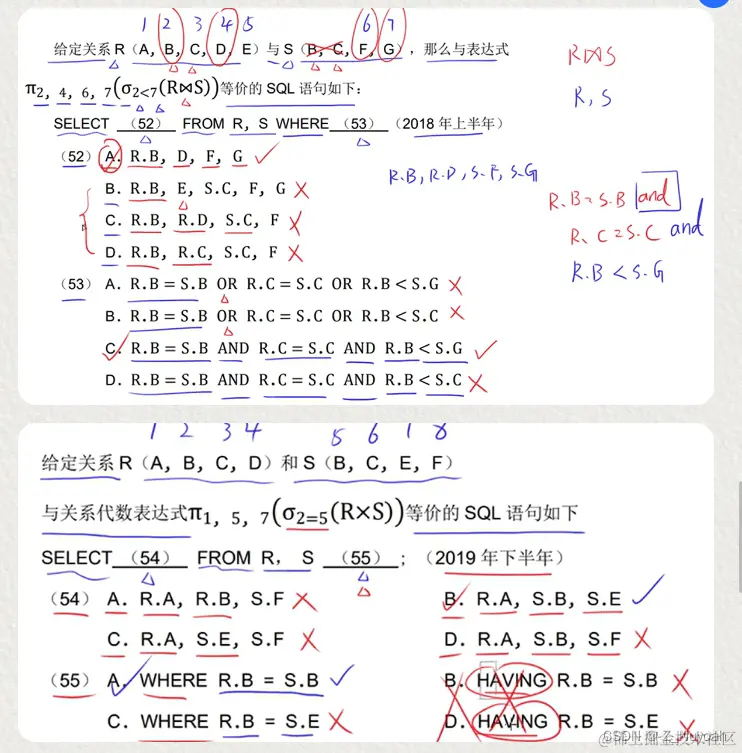 1 2 3 4 5 6 7
给定关系 R（A, B, C, D, E）与 S（B, C, F, G），那么与表达式
R⋈S
π2, 4, 6, 7(σ2<7(R⋈S))等价的 SQL 语句如下:
R, S
SELECT （52） FROM R, S WHERE （53） （2018 年上半年）
（52） A. R.B, D, F, G
R.B, R.D, S.F, S.G
B. R.B, E, S.C, F, G
R.B=S.B and
C. R.B, R.D, S.C, F
R.C=S.C and
D. R.B, R.C, S.C, F
R.B<S.G
（53） A. R.B = S.B OR R.C = S.C OR R.B < S.G
B. R.B = S.B OR R.C = S.C OR R.B < S.C
C. R.B = S.B AND R.C = S.C AND R.B < S.G
D. R.B = S.B AND R.C = S.C AND R.B < S.C
1 2 3 4 5 6 1 8
给定关系 R（A, B, C, D）和 S（B, C, E, F）
与关系代数表达式π1, 5, 7(σ2=5(R×S))等价的 SQL 语句如下
SELECT （54） FROM R, S （55） ; （2019 年下半年）
（54） A. R.A, R.B, S.F B. R.A, S.B, S.E
C. R.A, S.E, S.F D. R.A, S.B, S.F
（55） A. WHERE R.B = S.B B. HAVING R.B = S.B
C. WHERE R.B = S.E D. HAVING R.B = S.E